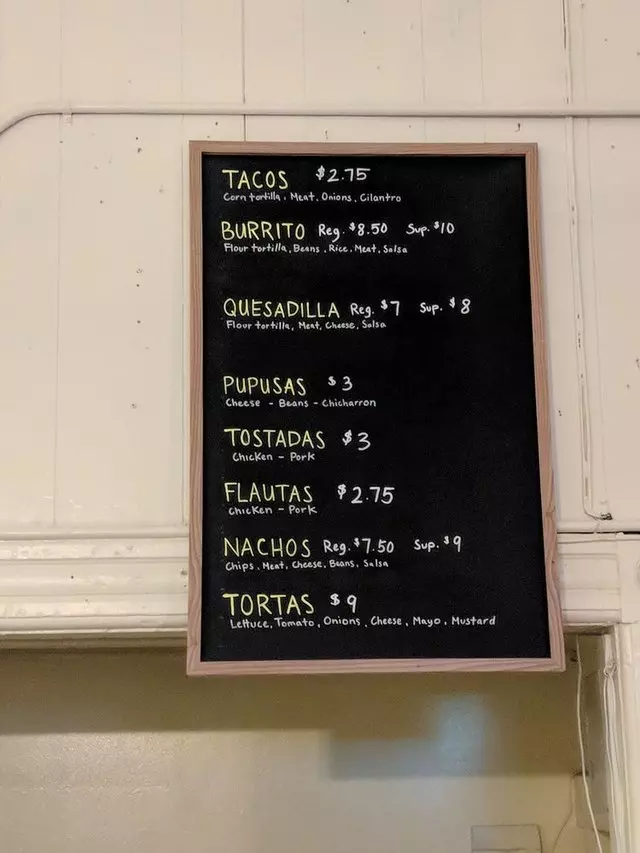 TACOS $2.75
Corn tortilla, Meat, Onions, Cilantro
BURRITO Reg. $8.50 Sup. $10
Flour tortilla, Beans, Rice, Meat, Salsa
QUESADILLA Reg. $7 Sup. $8
Flour tortilla, Meat, Cheese, Salsa
PUPUSAS $3
Cheese - Beans - Chicharron
TOSTADAS $3
Chicken - Pork
FLAUTAS $2.75
Chicken - Pork
NACHOS Reg. $7.50 Sup. $9
Chips, Meat, Cheese, Beans, Salsa
TORTAS $9
Lettuce, Tomato, Onions, Cheese, Mayo, Mustard